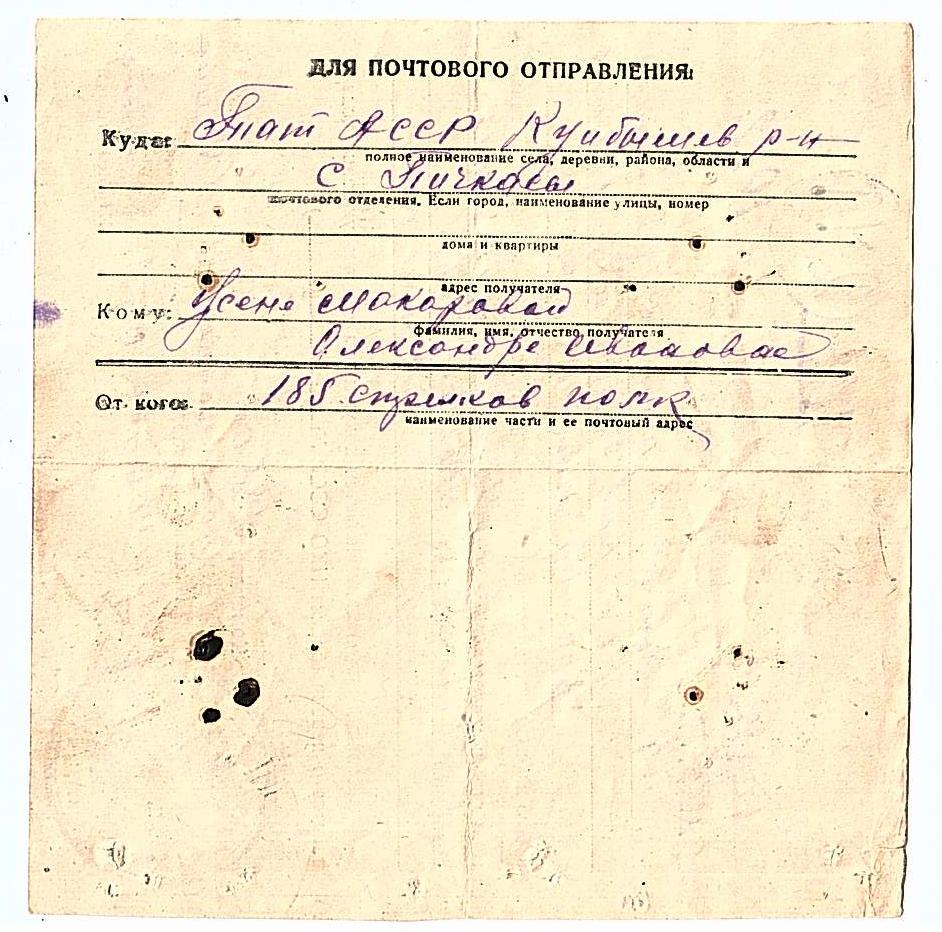 ДЛЯ ПОЧТОВОГО ОТПРАВЛЕНИЯ
Куда: Тат АССР Куйбышев р-н
полное наименование села, деревни, района, области и
с Пичкасы
почтового отделения. Если город, наименование улицы, номер
дома и квартиры
адрес получателя
Кому: Макаровой
фамилия, имя, отчество получателя
Александре Ивановне
От кого: 185 стрелков полк
наименование части и ее почтовый адрес